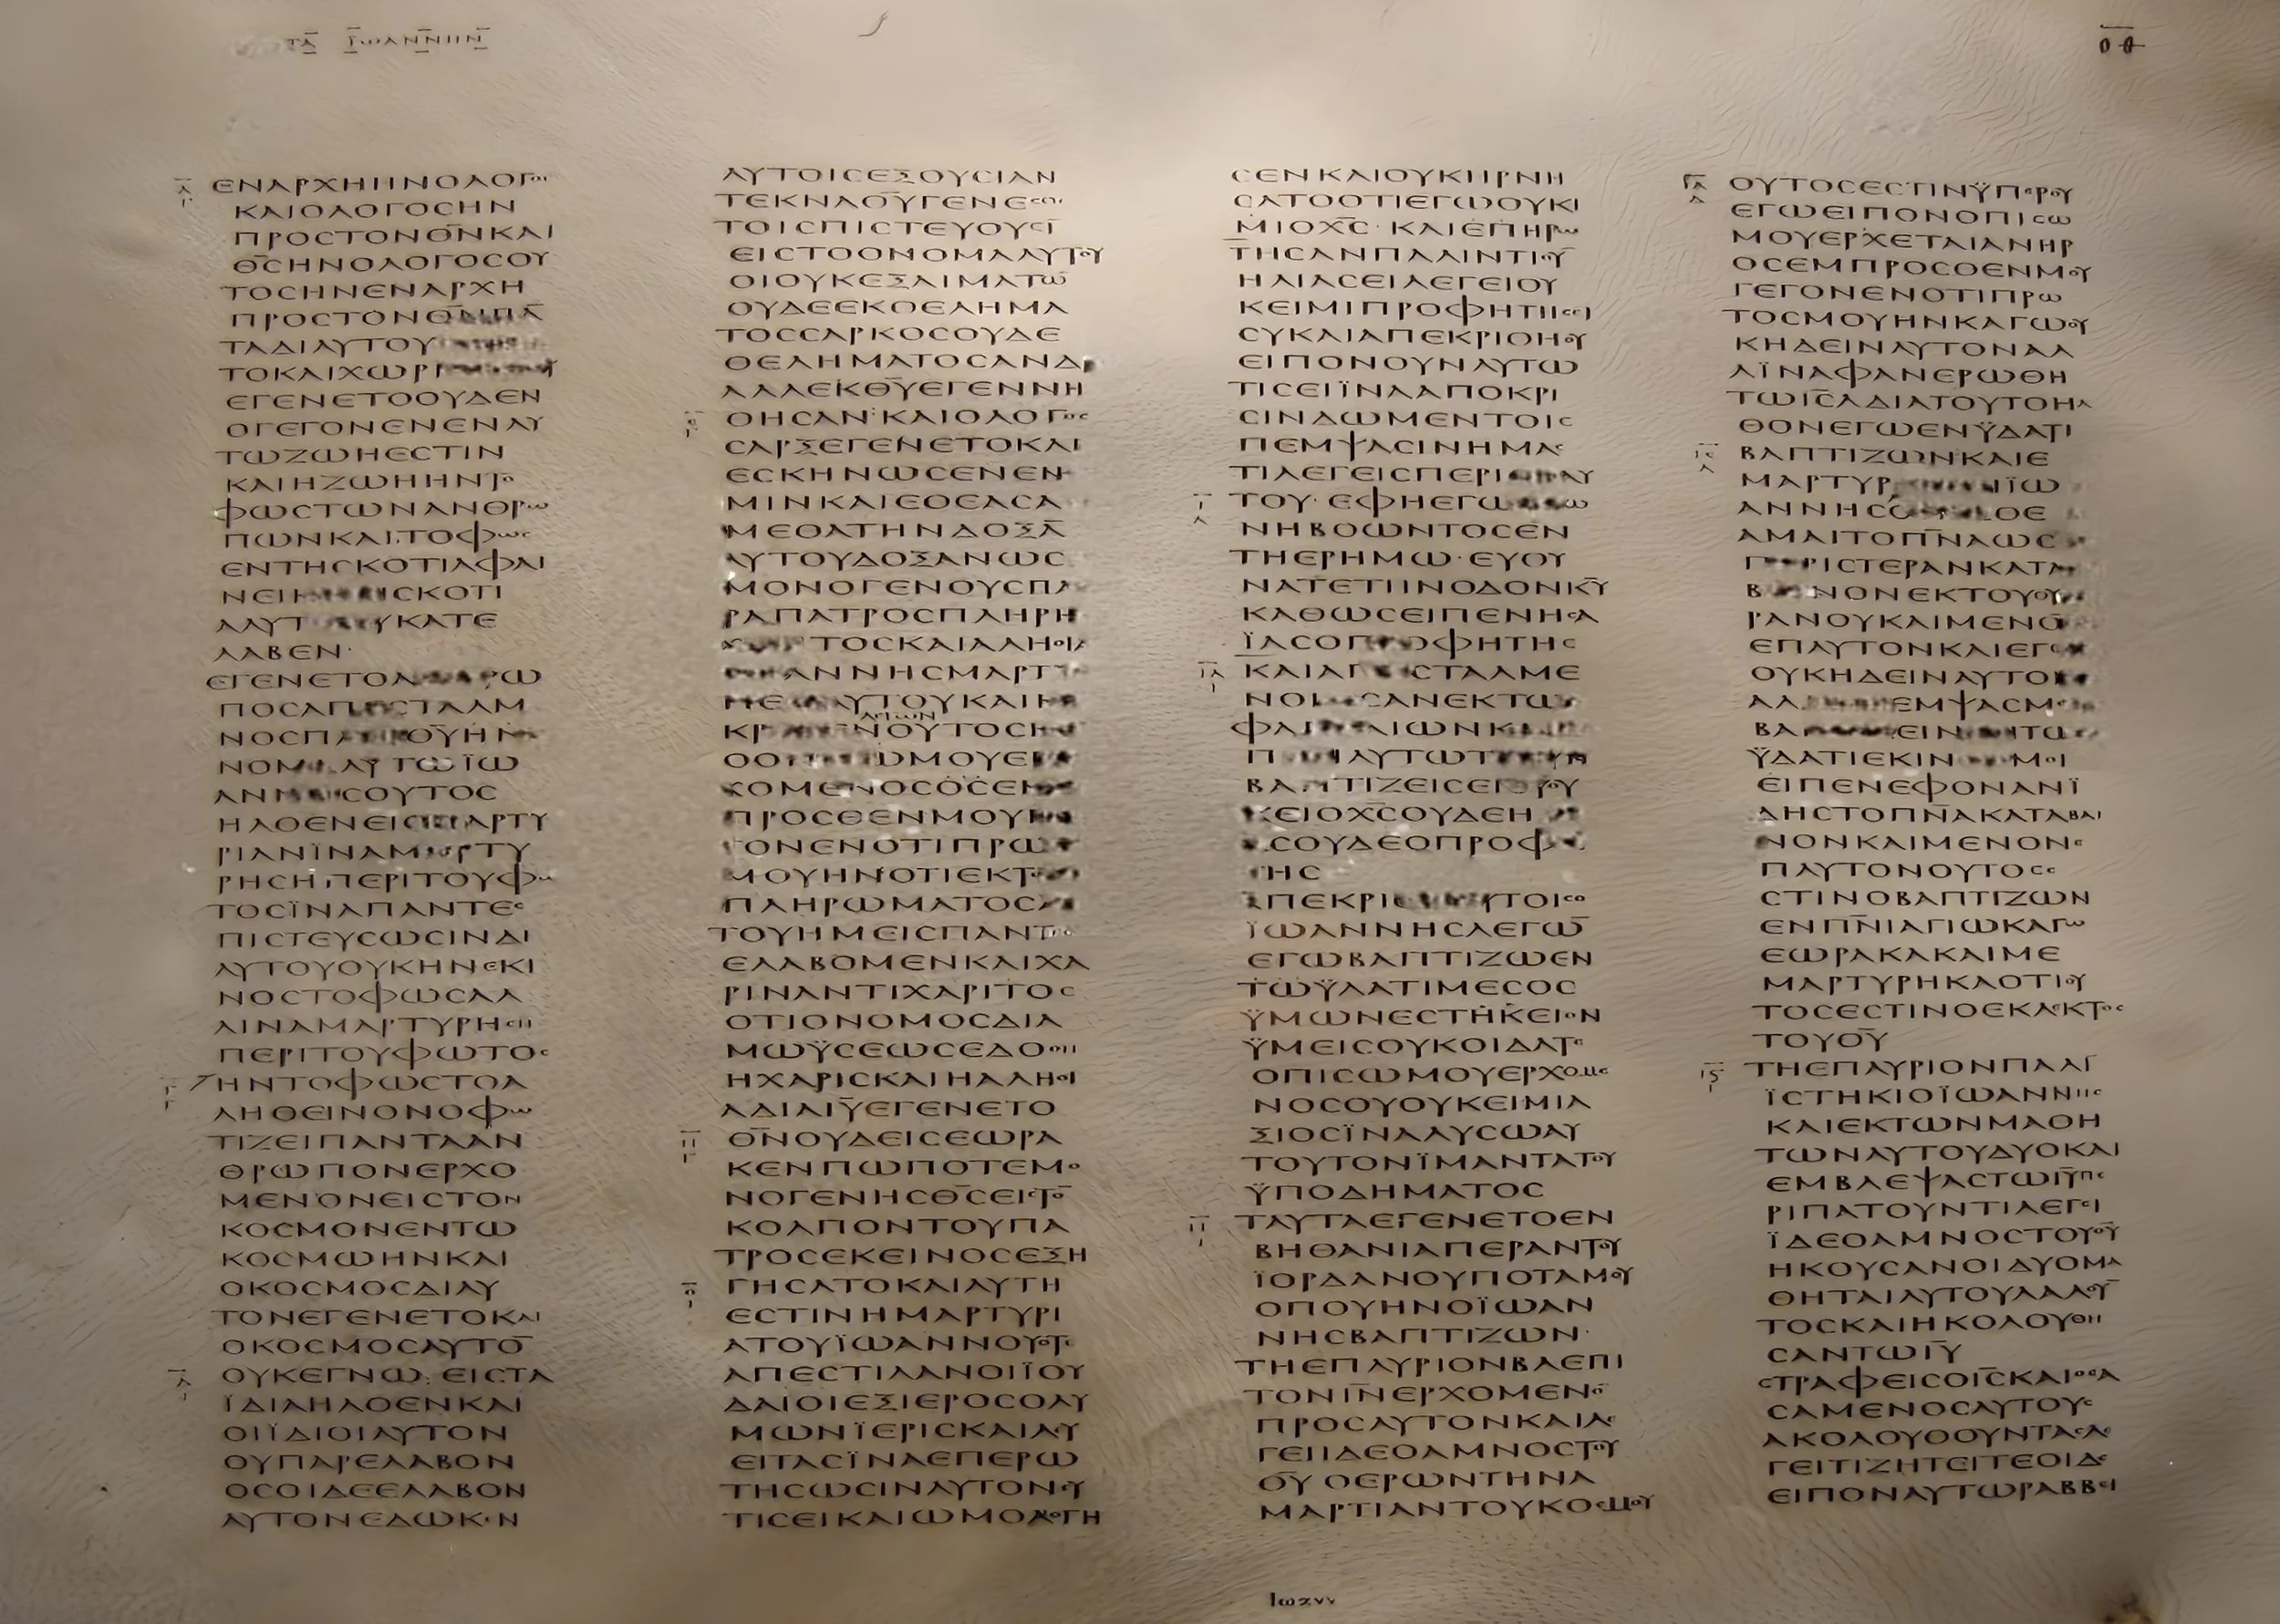 ΤΑ ΙΩΑΝΝΗΝ
ΟΘ
ΕΝΑΡΧΗΗΝΟΛΟΓΟϹ
ΚΑΙΟΛΟΓΟϹΗΝ
ΠΡΟϹΤΟΝΘ̅Ν̅ΚΑΙ
Θ̅Ϲ̅ΗΝΟΛΟΓΟϹΟΥ
ΤΟϹΗΝΕΝΑΡΧΗ
ΠΡΟϹΤΟΝΘ̅Ν̅ΠΑ̅
ΤΑΔΙΑΥΤΟΥ
ΤΟΚΑΙΧΩΡΙ
ΕΓΕΝΕΤΟΟΥΔΕΝ
ΟΓΕΓΟΝΕΝΕΝΑΥ
ΤΩΖΩΗΕϹΤΙΝ
ΚΑΙΗΖΩΗΗΝΤΟ
ΦΩϹΤΩΝΑΝΘΡΩ
ΠΩΝΚΑΙΤΟΦΩϹ
ΕΝΤΗϹΚΟΤΙΑΦΑΙ
ΝΕΙ ϹΚΟΤΙ
ΑΑΥΤ ΥΚΑΤΕ
ΛΑΒΕΝ·
ΕΓΕΝΕΤΟΑΝΘΡΩ
ΠΟϹΑΠΕϹΤΑΛΜ
ΝΟϹΠΑΡΑΘ̅Υ̅ΗΝ
ΝΟΜΑΑΥΤΩΪΩ
ΑΝΝΗϹΟΥΤΟϹ
ΗΛΘΕΝΕΙϹΜΑΡΤΥ
ΡΙΑΝΪΝΑΜΑΡΤΥ
ΡΗϹΗΠΕΡΙΤΟΥΦΩ
ΤΟϹΪΝΑΠΑΝΤΕϹ
ΠΙϹΤΕΥϹΩϹΙΝΔΙ
ΑΥΤΟΥΟΥΚΗΝΕΚΙ
ΝΟϹΤΟΦΩϹΑΛ
ΛΙΝΑΜΑΡΤΥΡΗϹΗ
ΠΕΡΙΤΟΥΦΩΤΟϹ
ΗΝΤΟΦΩϹΤΟΑ
ΛΗΘΕΙΝΟΝΟΦΩ
ΤΙΖΕΙΠΑΝΤΑΑΝ
ΘΡΩΠΟΝΕΡΧΟ
ΜΕΝΟΝΕΙϹΤΟΝ
ΚΟϹΜΟΝΕΝΤΩ
ΚΟϹΜΩΗΝΚΑΙ
ΟΚΟϹΜΟϹΔΙΑΥ
ΤΟΝΕΓΕΝΕΤΟΚΑΙ
ΟΚΟϹΜΟϹΑΥΤΟ̅
ΟΥΚΕΓΝΩ: ΕΙϹΤΑ
ΪΔΙΑΗΛΘΕΝΚΑΙ
ΟΙΪΔΙΟΙΑΥΤΟΝ
ΟΥΠΑΡΕΛΑΒΟΝ
ΟϹΟΙΔΕΕΛΑΒΟΝ
ΑΥΤΟΝΕΔΩΚΕΝ
ΑΥΤΟΙϹΕΞΟΥϹΙΑΝ
ΤΕΚΝΑΘ̅Υ̅ΓΕΝΕϹΘΑΙ
ΤΟΙϹΠΙϹΤΕΥΟΥϹΙ̅
ΕΙϹΤΟΟΝΟΜΑΑΥΤΟΥ
ΟΙΟΥΚΕΞΑΙΜΑΤΩ̅
ΟΥΔΕΕΚΘΕΛΗΜΑ
ΤΟϹϹΑΡΚΟϹΟΥΔΕ
ΘΕΛΗΜΑΤΟϹΑΝΔ
ΑΛΛΕΚΘ̅Υ̅ΕΓΕΝΝΗ
ΘΗϹΑΝ·ΚΑΙΟΛΟΓΟϹ
ϹΑΡΞΕΓΕΝΕΤΟΚΑΙ
ΕϹΚΗΝΩϹΕΝΕΝ
ΜΙΝΚΑΙΕΘΕΑϹΑ
ΜΕΘΑΤΗΝΔΟΞΑ̅
ΑΥΤΟΥΔΟΞΑΝΩϹ
ΜΟΝΟΓΕΝΟΥϹΠΑ
ΡΑΠΑΤΡΟϹΠΛΗΡΗ
ΤΟϹΚΑΙΑΛΗΘΙΑ
ΑΝΝΗϹΜΑΡΤΥ
ΑΥΤΟΥΚΑΙΚ
ΛΕΓΩΝ
ΚΡ ΝΟΥΤΟϹΗ
ΟΟ ΩΜΟΥΕ
ΧΟΜΕΝΟϹΟϹΕΜ
ΠΡΟϹΘΕΝΜΟΥ
ΓΟΝΕΝΟΤΙΠΡΩ
ΜΟΥΗΝΟΤΙΕΚΤ
ΠΛΗΡΩΜΑΤΟϹ
ΤΟΥΗΜΕΙϹΠΑΝΤ
ΕΛΑΒΟΜΕΝΚΑΙΧΑ
ΡΙΝΑΝΤΙΧΑΡΙΤΟϹ
ΟΤΙΟΝΟΜΟϹΔΙΑ
ΜΩΫϹΕΩϹΕΔΟΘΗ
ΗΧΑΡΙϹΚΑΙΗΑΛΗΘΙ
ΑΔΙΑΙ̅Υ̅ΕΓΕΝΕΤΟ
Θ̅Ν̅ΟΥΔΕΙϹΕΩΡΑ
ΚΕΝΠΩΠΟΤΕΜΟ
ΝΟΓΕΝΗϹΘ̅Ϲ̅ΕΙϹΤΟ̅
ΚΟΛΠΟΝΤΟΥΠΑ
ΤΡΟϹΕΚΕΙΝΟϹΕΞΗ
ΓΗϹΑΤΟΚΑΙΑΥΤΗ
ΕϹΤΙΝΗΜΑΡΤΥΡΙ
ΑΤΟΥΪΩΑΝΝΟΥΟΤΕ
ΑΠΕϹΤΙΛΑΝΟΙΪΟΥ
ΔΑΙΟΙΕΞΙΕΡΟϹΟΛΥ
ΜΩΝΪΕΡΙϹΚΑΙΛΕΥ
ΕΙΤΑϹΪΝΑΕΠΕΡΩ
ΤΗϹΩϹΙΝΑΥΤΟΝϹΥ
ΤΙϹΕΙΚΑΙΩΜΟΛΟΓΗ
ϹΕΝΚΑΙΟΥΚΗΡΝΗ
ϹΑΤΟΟΤΙΕΓΩΟΥΚΙ
ΜΙΟΧ̅Ϲ̅·ΚΑΙΕΠΗΡΩ
ΤΗϹΑΝΠΑΛΙΝΤΙΟΥ̅
ΗΛΙΑϹΕΙΛΕΓΕΙΟΥ
ΚΕΙΜΙΠΡΟΦΗΤΗϹΕΙ
ϹΥΚΑΙΑΠΕΚΡΙΘΗΟΥ
ΕΙΠΟΝΟΥΝΑΥΤΩ
ΤΙϹΕΙΪΝΑΑΠΟΚΡΙ
ϹΙΝΔΩΜΕΝΤΟΙϹ
ΠΕΜΨΑϹΙΝΗΜΑϹ
ΤΙΛΕΓΕΙϹΠΕΡΙϹΕΑΥ
ΤΟΥ·ΕΦΗΕΓΩ Ω
ΝΗΒΟΩΝΤΟϹΕΝ
ΤΗΕΡΗΜΩ·ΕΥΘΥ
ΝΑΤΕΤΗΝΟΔΟΝΚ̅Υ̅
ΚΑΘΩϹΕΙΠΕΝΗϹΑ
ΪΑϹΟΠΡΟΦΗΤΗϹ
ΚΑΙΑΠΕϹΤΑΛΜΕ
ΝΟΙ ϹΑΝΕΚΤΩ
ΦΑΡΙϹΑΙΩΝΚ
Π ΑΥΤΩΤ
ΒΑΠΤΙΖΕΙϹΕΙ ϹΥ
ΚΕΙΟΧ̅Ϲ̅ΟΥΔΕΗ
ϹΟΥΔΕΟΠΡΟΦ
ΤΗϹ
ΑΠΕΚΡΙΘΗΑΥΤΟΙϹΟ
ΪΩΑΝΝΗϹΛΕΓΩ̅
ΕΓΩΒΑΠΤΙΖΩΕΝ
ΤΩΫΔΑΤΙΜΕϹΟϹ
ΫΜΩΝΕϹΤΗΚΕΙΟΝ
ΫΜΕΙϹΟΥΚΟΙΔΑΤΕ
ΟΠΙϹΩΜΟΥΕΡΧΟΜΕ
ΝΟϹΟΥΟΥΚΕΙΜΙΑ
ΞΙΟϹΪΝΑΛΥϹΩΑΥ
ΤΟΥΤΟΝΪΜΑΝΤΑΤΟΥ
ΫΠΟΔΗΜΑΤΟϹ
ΤΑΥΤΑΕΓΕΝΕΤΟΕΝ
ΒΗΘΑΝΙΑΠΕΡΑΝΤΟΥ
ΪΟΡΔΑΝΟΥΠΟΤΑΜΟΥ
ΟΠΟΥΗΝΟΪΩΑΝ
ΝΗϹΒΑΠΤΙΖΩΝ·
ΤΗΕΠΑΥΡΙΟΝΒΛΕΠΙ
ΤΟΝΙ̅Ν̅ΕΡΧΟΜΕΝΟ̅
ΠΡΟϹΑΥΤΟΝΚΑΙΛΕ
ΓΕΙΙΔΕΟΑΜΝΟϹΤΟΥ
Θ̅Υ̅ ΟΕΡΩΝΤΗΝΑ
ΜΑΡΤΙΑΝΤΟΥΚΟϹΜΟΥ
ΟΥΤΟϹΕϹΤΙΝΫΠΕΡΟΥ
ΕΓΩΕΙΠΟΝΟΠΙϹΩ
ΜΟΥΕΡΧΕΤΑΙΑΝΗΡ
ΟϹΕΜΠΡΟϹΘΕΝΜΟΥ
ΓΕΓΟΝΕΝΟΤΙΠΡΩ
ΤΟϹΜΟΥΗΝΚΑΓΩΟΥ
ΚΗΔΕΙΝΑΥΤΟΝΑΛ
ΛΪΝΑΦΑΝΕΡΩΘΗ
ΤΩΙϹ̅Λ̅ΔΙΑΤΟΥΤΟΗΛ
ΘΟΝΕΓΩΕΝΫΔΑΤΙ
ΒΑΠΤΙΖΩΝΚΑΙΕ
ΜΑΡΤΥΡ ΪΩ
ΑΝΝΗϹ ΘΕ
ΑΜΑΙΤΟΠ̅Ν̅Α̅ΩϹ
ΠΕΡΙϹΤΕΡΑΝΚΑΤΑ
ΒΑΙΝΟΝΕΚΤΟΥΟΥ
ΡΑΝΟΥΚΑΙΜΕΝΟ̅
ΕΠΑΥΤΟΝΚΑΙΕΓΩ
ΟΥΚΗΔΕΙΝΑΥΤΟ
ΑΛ ΕΜΨΑϹΜ
ΒΑ ΕΙΝ ΤΩ
ΫΔΑΤΙΕΚΙΝ ΜΟΙ
ΕΙΠΕΝΕΦΟΝΑΝΪ
ΔΗϹΤΟΠ̅Ν̅Α̅ΚΑΤΑΒΑΙ
ΝΟΝΚΑΙΜΕΝΟΝΕ
ΠΑΥΤΟΝΟΥΤΟϹΕ
ϹΤΙΝΟΒΑΠΤΙΖΩΝ
ΕΝΠ̅Ν̅Ι̅ΑΓΙΩΚΑΓΩ
ΕΩΡΑΚΑΚΑΙΜΕ
ΜΑΡΤΥΡΗΚΑΟΤΙΟΥ
ΤΟϹΕϹΤΙΝΟΕΚΛΕΚΤΟϹ
ΤΟΥΘ̅Υ̅
ΤΗΕΠΑΥΡΙΟΝΠΑΛΙ̅
ΪϹΤΗΚΙΟΪΩΑΝΝΗϹ
ΚΑΙΕΚΤΩΝΜΑΘΗ
ΤΩΝΑΥΤΟΥΔΥΟΚΑΙ
ΕΜΒΛΕΨΑϹΤΩΙ̅Υ̅ΠΕ
ΡΙΠΑΤΟΥΝΤΙΛΕΓΕΙ
ΪΔΕΟΑΜΝΟϹΤΟΥΘ̅Υ̅
ΗΚΟΥϹΑΝΟΙΔΥΟΜΑ
ΘΗΤΑΙΑΥΤΟΥΛΑΛΟΥ̅
ΤΟϹΚΑΙΗΚΟΛΟΥΘΗ
ϹΑΝΤΩΙ̅Υ̅
ϹΤΡΑΦΕΙϹΟΙ̅Ϲ̅ΚΑΙΘΕΑ
ϹΑΜΕΝΟϹΑΥΤΟΥϹ
ΑΚΟΛΟΥΘΟΥΝΤΑϹΛΕ
ΓΕΙΤΙΖΗΤΕΙΤΕΟΙΔΕ
ΕΙΠΟΝΑΥΤΩΡΑΒΒΕΙ
Ιωανν